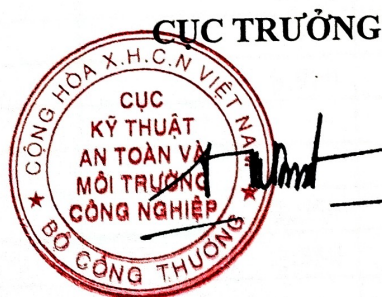 CỤC TRƯỞNG
CỘNG HÒA X.H.C.N VIỆT NAM
CỤC
KỸ THUẬT
AN TOÀN VÀ
MÔI TRƯỜNG
CÔNG NGHIỆP
★ BỘ CÔNG THƯƠNG ★